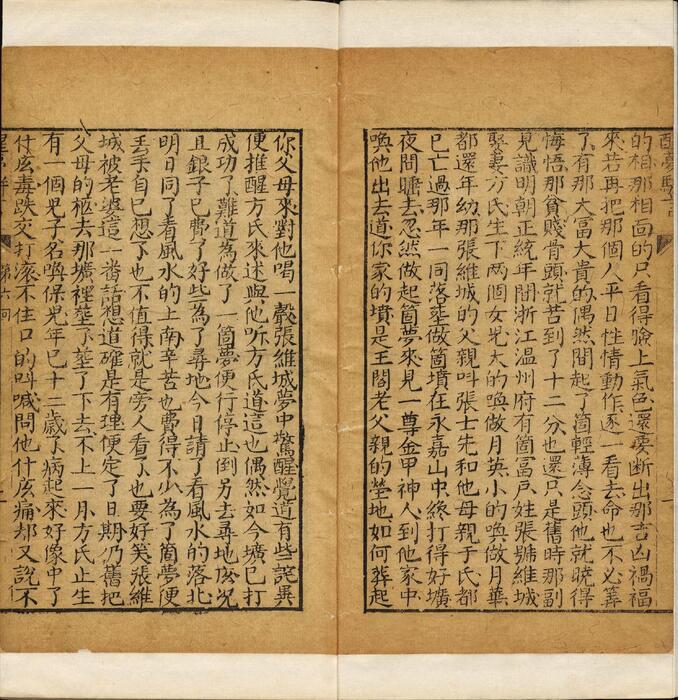 的相那相面的只看得臉上氣色還要斷出那吉凶禍福
來若再把那個人平日性情動作逐一看去命也不必算
了有那大富大貴的偶然間起了箇輕薄念頭他就曉得
悔悟那貧賤骨頭就苦到了十二分也還只是舊時那副
見識明朝正統年間浙江溫州府有箇富戶姓張號維城
娶妻方氏生下两個女兒大的喚做月英小的喚做月華
都還年幼那張維城的父親叫張士先和他母親于氏都
已亡過那年一同落葬做箇墳在永嘉山中終打得好壙
夜間睡去忽然做起箇夢來見一尊金甲神人到他家中
喚他出去道你家的墳是王閣老父親的塋地如何葬起
你父母來對他喝一聲張維城夢中驚醒覺道有些詫異
便推醒方氏來述與他聽方氏道這也偶然如今壙已打
成功了難道為做了一箇夢便行停止倒另去尋地況
且銀子已費了好些為了尋地今日請了看風水的落北
明日同了看風水的上南辛苦也費得不少為了箇夢便
丟手自己想了也不值得就是旁人看了也要好笑張維
城被老婆這一番話想道確是有理便定了日期仍舊把
父母的柩去那壙裡塟了塟了下去不上一月方氏止生
有一個兒子名喚保兒年已十三歲了病起來好像中了
什庅毒跌交打滾不住口的叫喊問他什庅痛却又說不
第六回